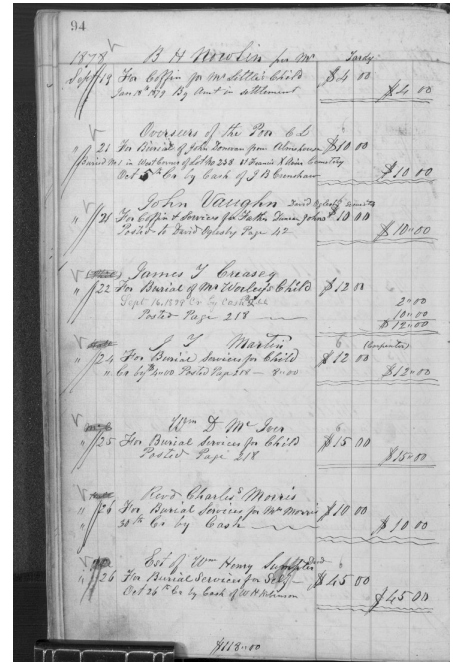 94
1878 B H Nowlin for Mr Tardy
Sept 19 For Coffin for Mr Child $4 00
Jan 1879 By Amt in settlement $4 00
Overseers of the Poor C L
" 21 For Burial of John Donovan from Almshouse $10 00
Buried No 1 in West Corner of Lot No 238 Cemetery
Oct 5th Cr by Cash of J B Crenshaw $10 00
John Vaughn David Oglesby
" 21 For Coffin & Services for Father John $10 00
Posted to David Oglesby Page 42 $10"00
James T Creasey
" 22 For Burial of Mr Worley's Child $12 00
Sept 16. 1878 Cr by Cash 2"00
Posted Page 218 10"00
$12"00
Martin (Carpenter)
" 24 For Burial Services for Child $12 00
" Cr by $4"00 Posted Page 208 — 8"00 $12"00
Wm D Mc Iver
" 25 For Burial Services for Child $15 00
Posted Page 218 $15"00
Revd Charles Morris
" 26 For Burial Services for Mrs Morris $10 00
" 30th Cr by Cash $10 00
Est of Wm Henry
" 26 For Burial Services for Self — $45 00
Oct 26th Cr by Cash of W H $45 00
$118"00